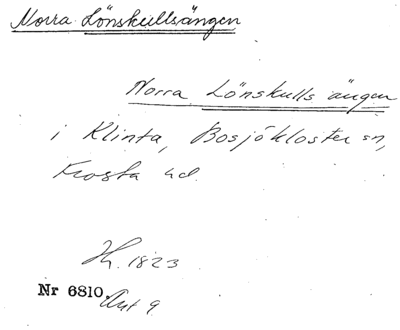 Norra Lönskullsängen
Norra Lönskulls ängen
i Klinta, Bosjökloster sn,
Frosta hd.
Hh. 1823
Nr 6810.
Akt 9